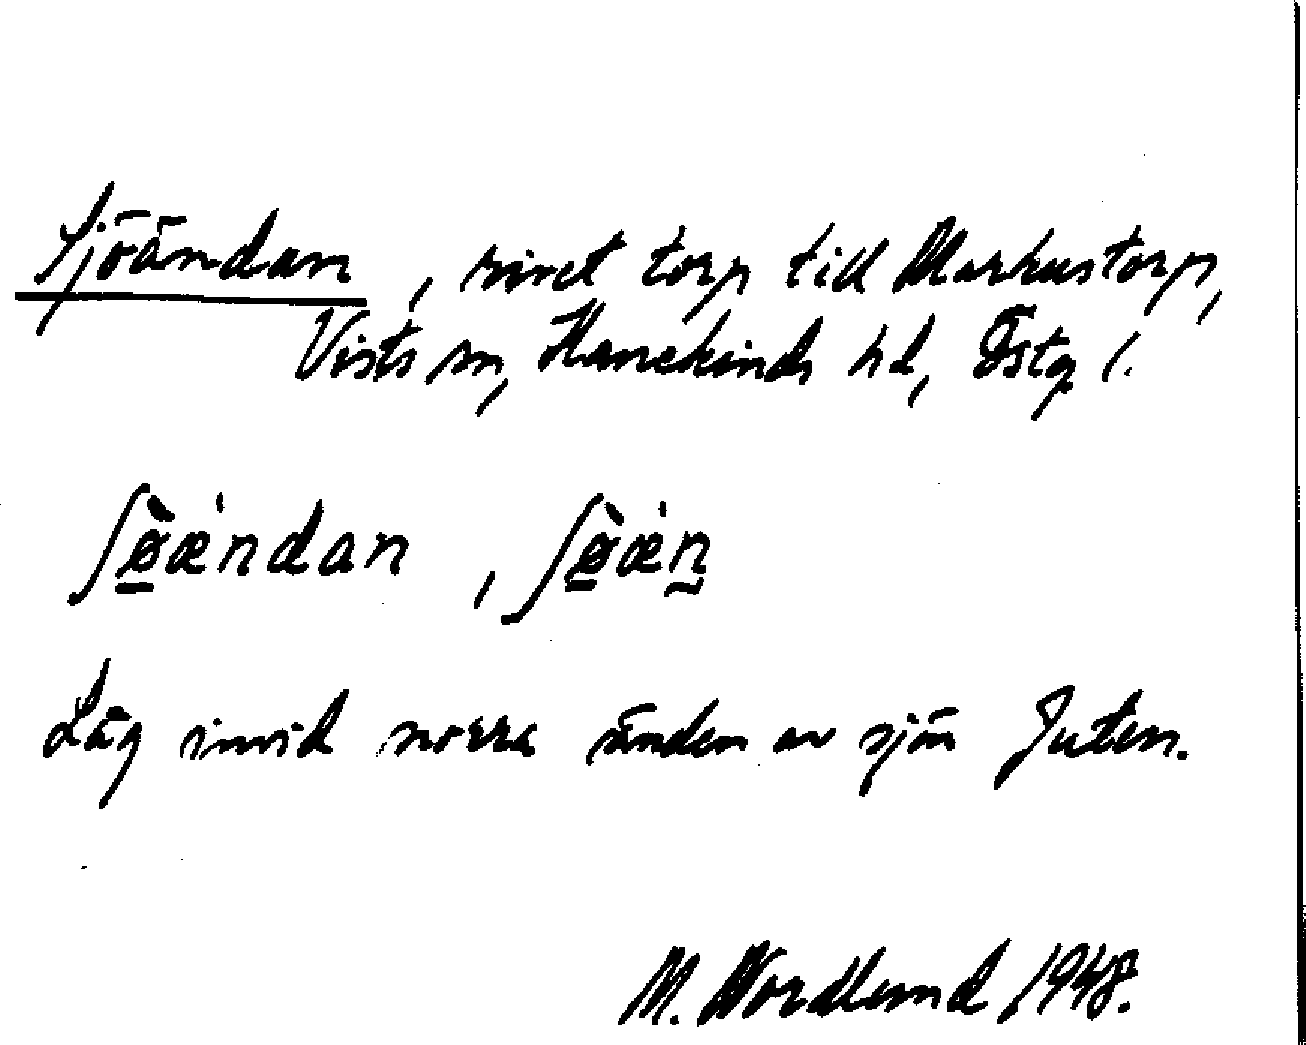 Sjöändan, rivet torp till Markustorp,
Vists sn, Hanekinds hd, Östg l.
ʃø̱̀æ̇ndan, ʃø̱̀æ̇n̠
Låg invid norra änden av sjön Juten.
M. Nordlund 1948.